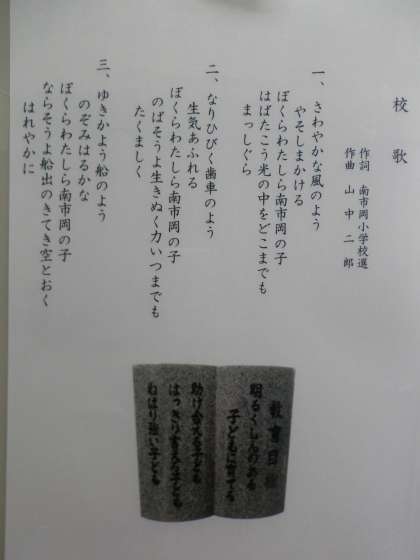 校歌
作詞 南市岡小学校選
作曲 山中二郎
一、さわやかな風のよう
やそしまかける
ぼくらわたしら南市岡の子
はばたこう光の中をどこまでも
まっしぐら
二、なりひびく歯車のよう
生気あふれる
ぼくらわたしら南市岡の子
のばそうよ生きぬく力いつまでも
たくましく
三、ゆきかよう船のよう
のぞみはるかな
ぼくらわたしら南市岡の子
ならそうよ船出のきてき空とおく
はれやかに
教育目標
明るくしんのある
子どもに育てる
助け合える子ども
はっきり言える子ども
ねばり強い子ども